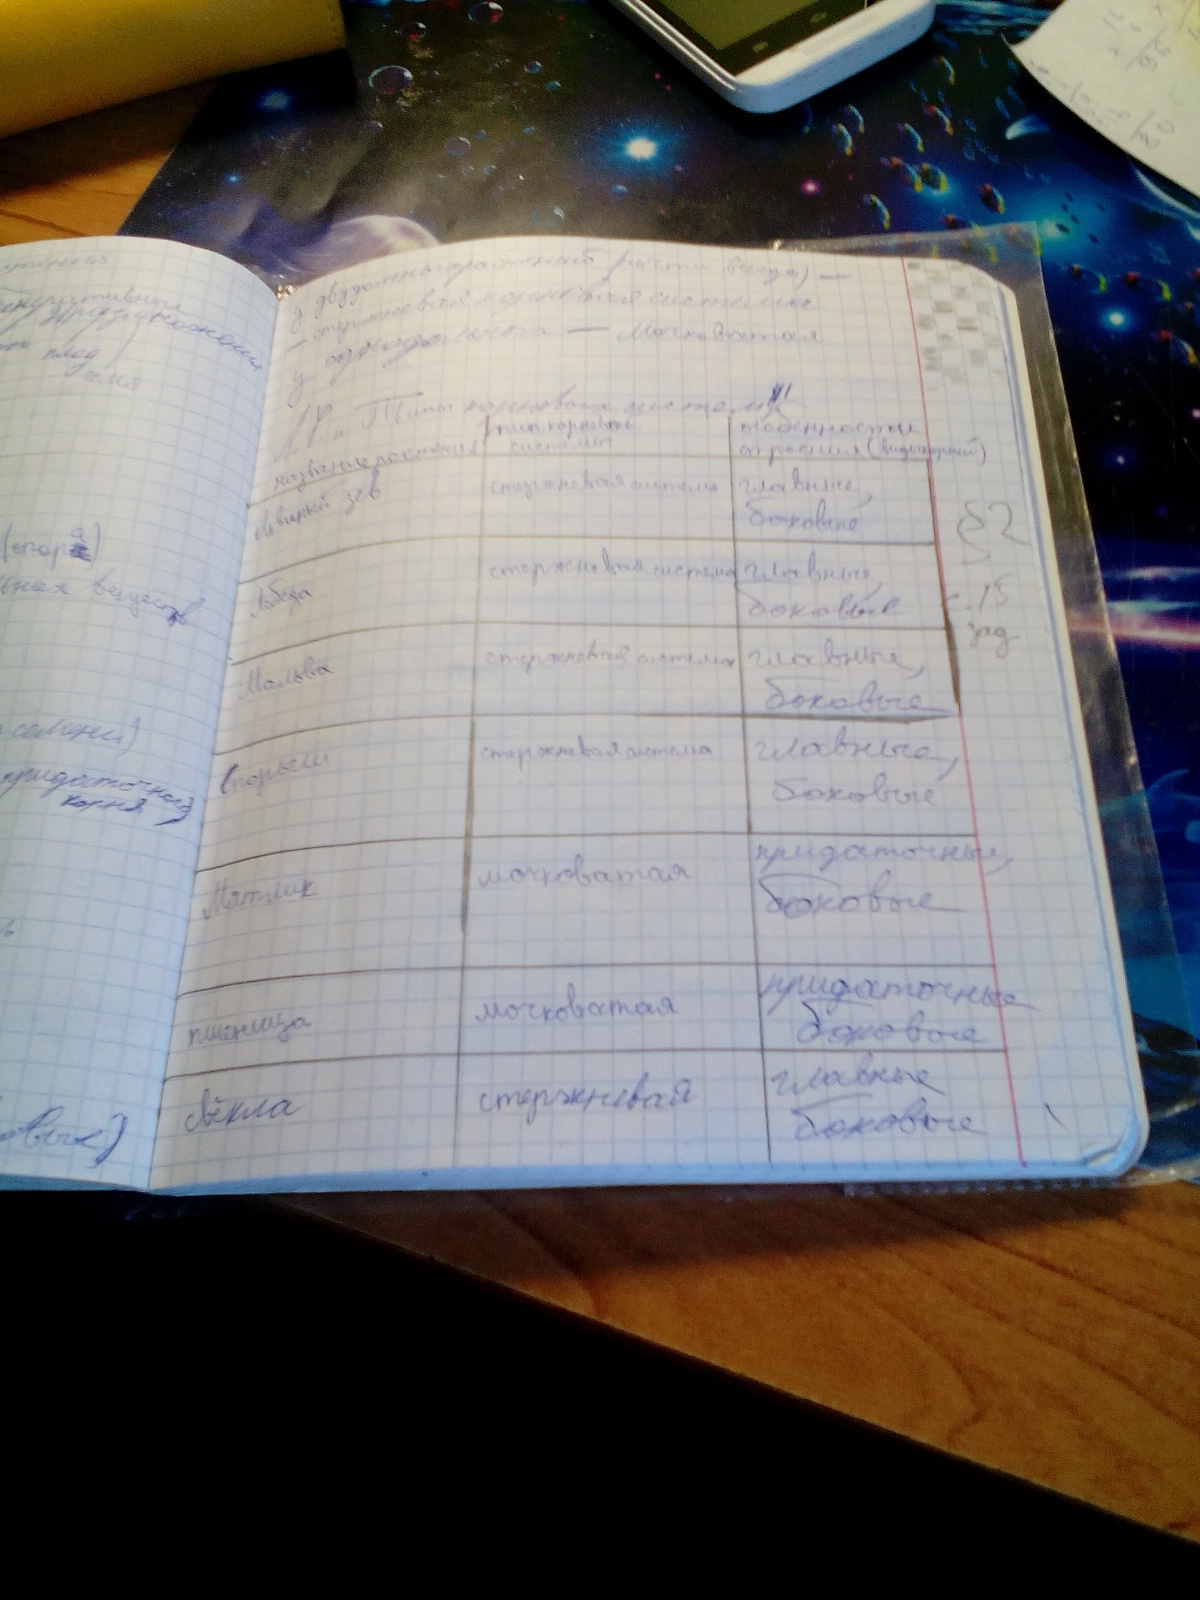 генеративный
размножения
плод
семя
(спора)
веществ
семени)
придаточного
корня)
у двудольных растений (почти всегда) —
— стержневая корневая система
у однодольных — мочковатая
Л.Р. Типы корневых систем
название растения тип корневой особенности
системы строения (виды корней)
Львиный зев стержневая система главные,
боковые
Лебеда стержневая система главные,
боковые
Мальва стержневая система главные,
боковые
Спорыш стержневая система главные,
боковые
Мятлик мочковатая придаточные,
боковые
пшеница мочковатая придаточные
боковые
свёкла стержневая главные
боковые
§2
с. 15
зад